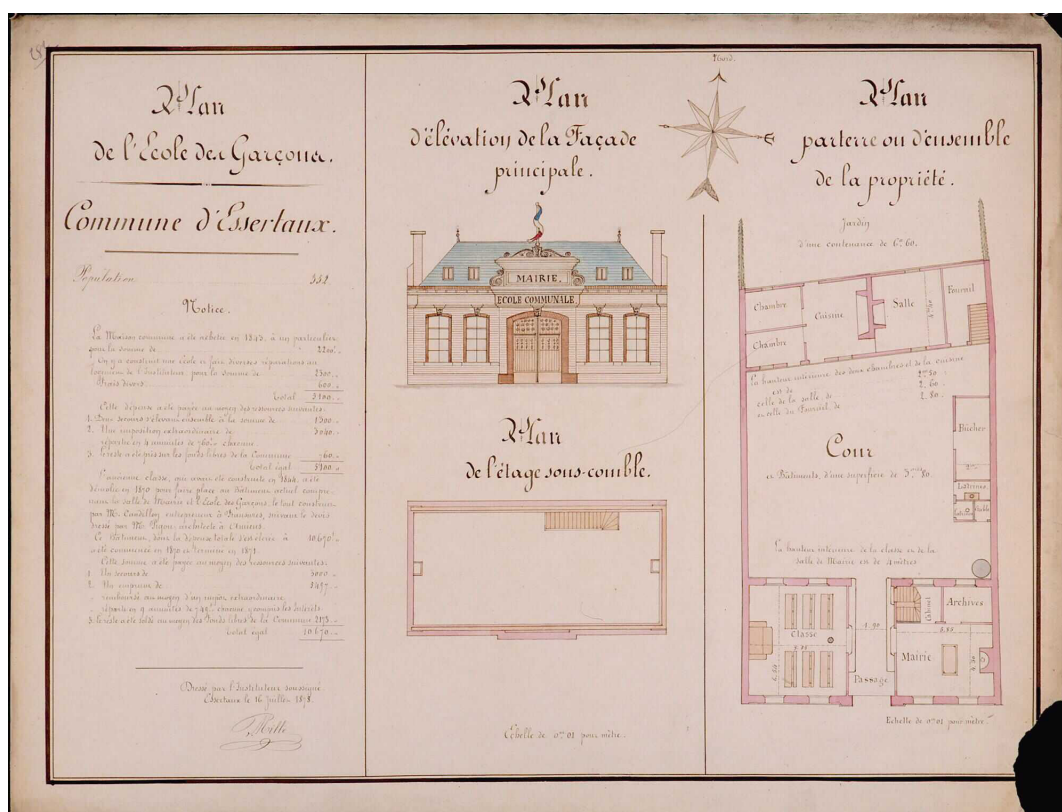 Plan
de l'École des Garçons.
Commune d'Essertaux.
Population 552
Notice.
La Maison commune a été achetée en 1843, à un particulier
pour la somme de 2200
On y a construit une école et fait diverses réparations au
logement de l'Instituteur, pour la somme de 2300
Frais divers 600
Total
Cette dépense a été payée au moyen des ressources suivantes:
1. secours s'élevant ensemble à la somme de 1300
2. Une imposition extraordinaire de 3040
répartie en 4 annuités de 760 chacune
3. le reste a été pris sur les fonds libres de la Commune 760
Total égal
L'ancienne classe, qui avait été construite en 1844, a été
démolie en 1870 pour faire place au Bâtiment actuel
la salle de Mairie et l'École des Garçons, le tout construit
par M. entrepreneur à suivant le devis
dressé par M. architecte à Amiens.
Ce Bâtiment, dont la dépense totale s'est élevée à 10670
a été commencé en 1870 et terminé en 1871.
Cette somme a été payée au moyen des ressources suivantes:
1. Un secours de 3000
2. Un emprunt de
remboursé au moyen d'un impôt extraordinaire,
réparti en 9 annuités de chacune, y compris les intérêts
3. le reste a été soldé au moyen des fonds libres de la Commune 2173
Total égal 10670
Dressé par l'Instituteur soussigné
Essertaux le 16 Juillet 1878.
Plan
d'élévation de la Façade
principale.
MAIRIE.
ECOLE COMMUNALE.
Plan
de l'étage sous-comble.
Echelle de 0m01 pour mètre.
Nord.
Plan
parterre ou d'ensemble
de la propriété.
Jardin
d'une contenance de 6a 60.
Chambre
Chambre
Cuisine
Salle
Fournil
La hauteur intérieure des deux chambres et de la cuisine
est de 2m 50
celle de la salle de 2. 60
et celle du Fournil de 2. 80
Bûcher
Cour
et Bâtiments, d'une superficie de
Latrines
La hauteur intérieure de la classe et de la
salle de Mairie est de 4 mètres
Classe
Cabinet
Archives
Mairie
Passage
Echelle de 0m01 pour mètre